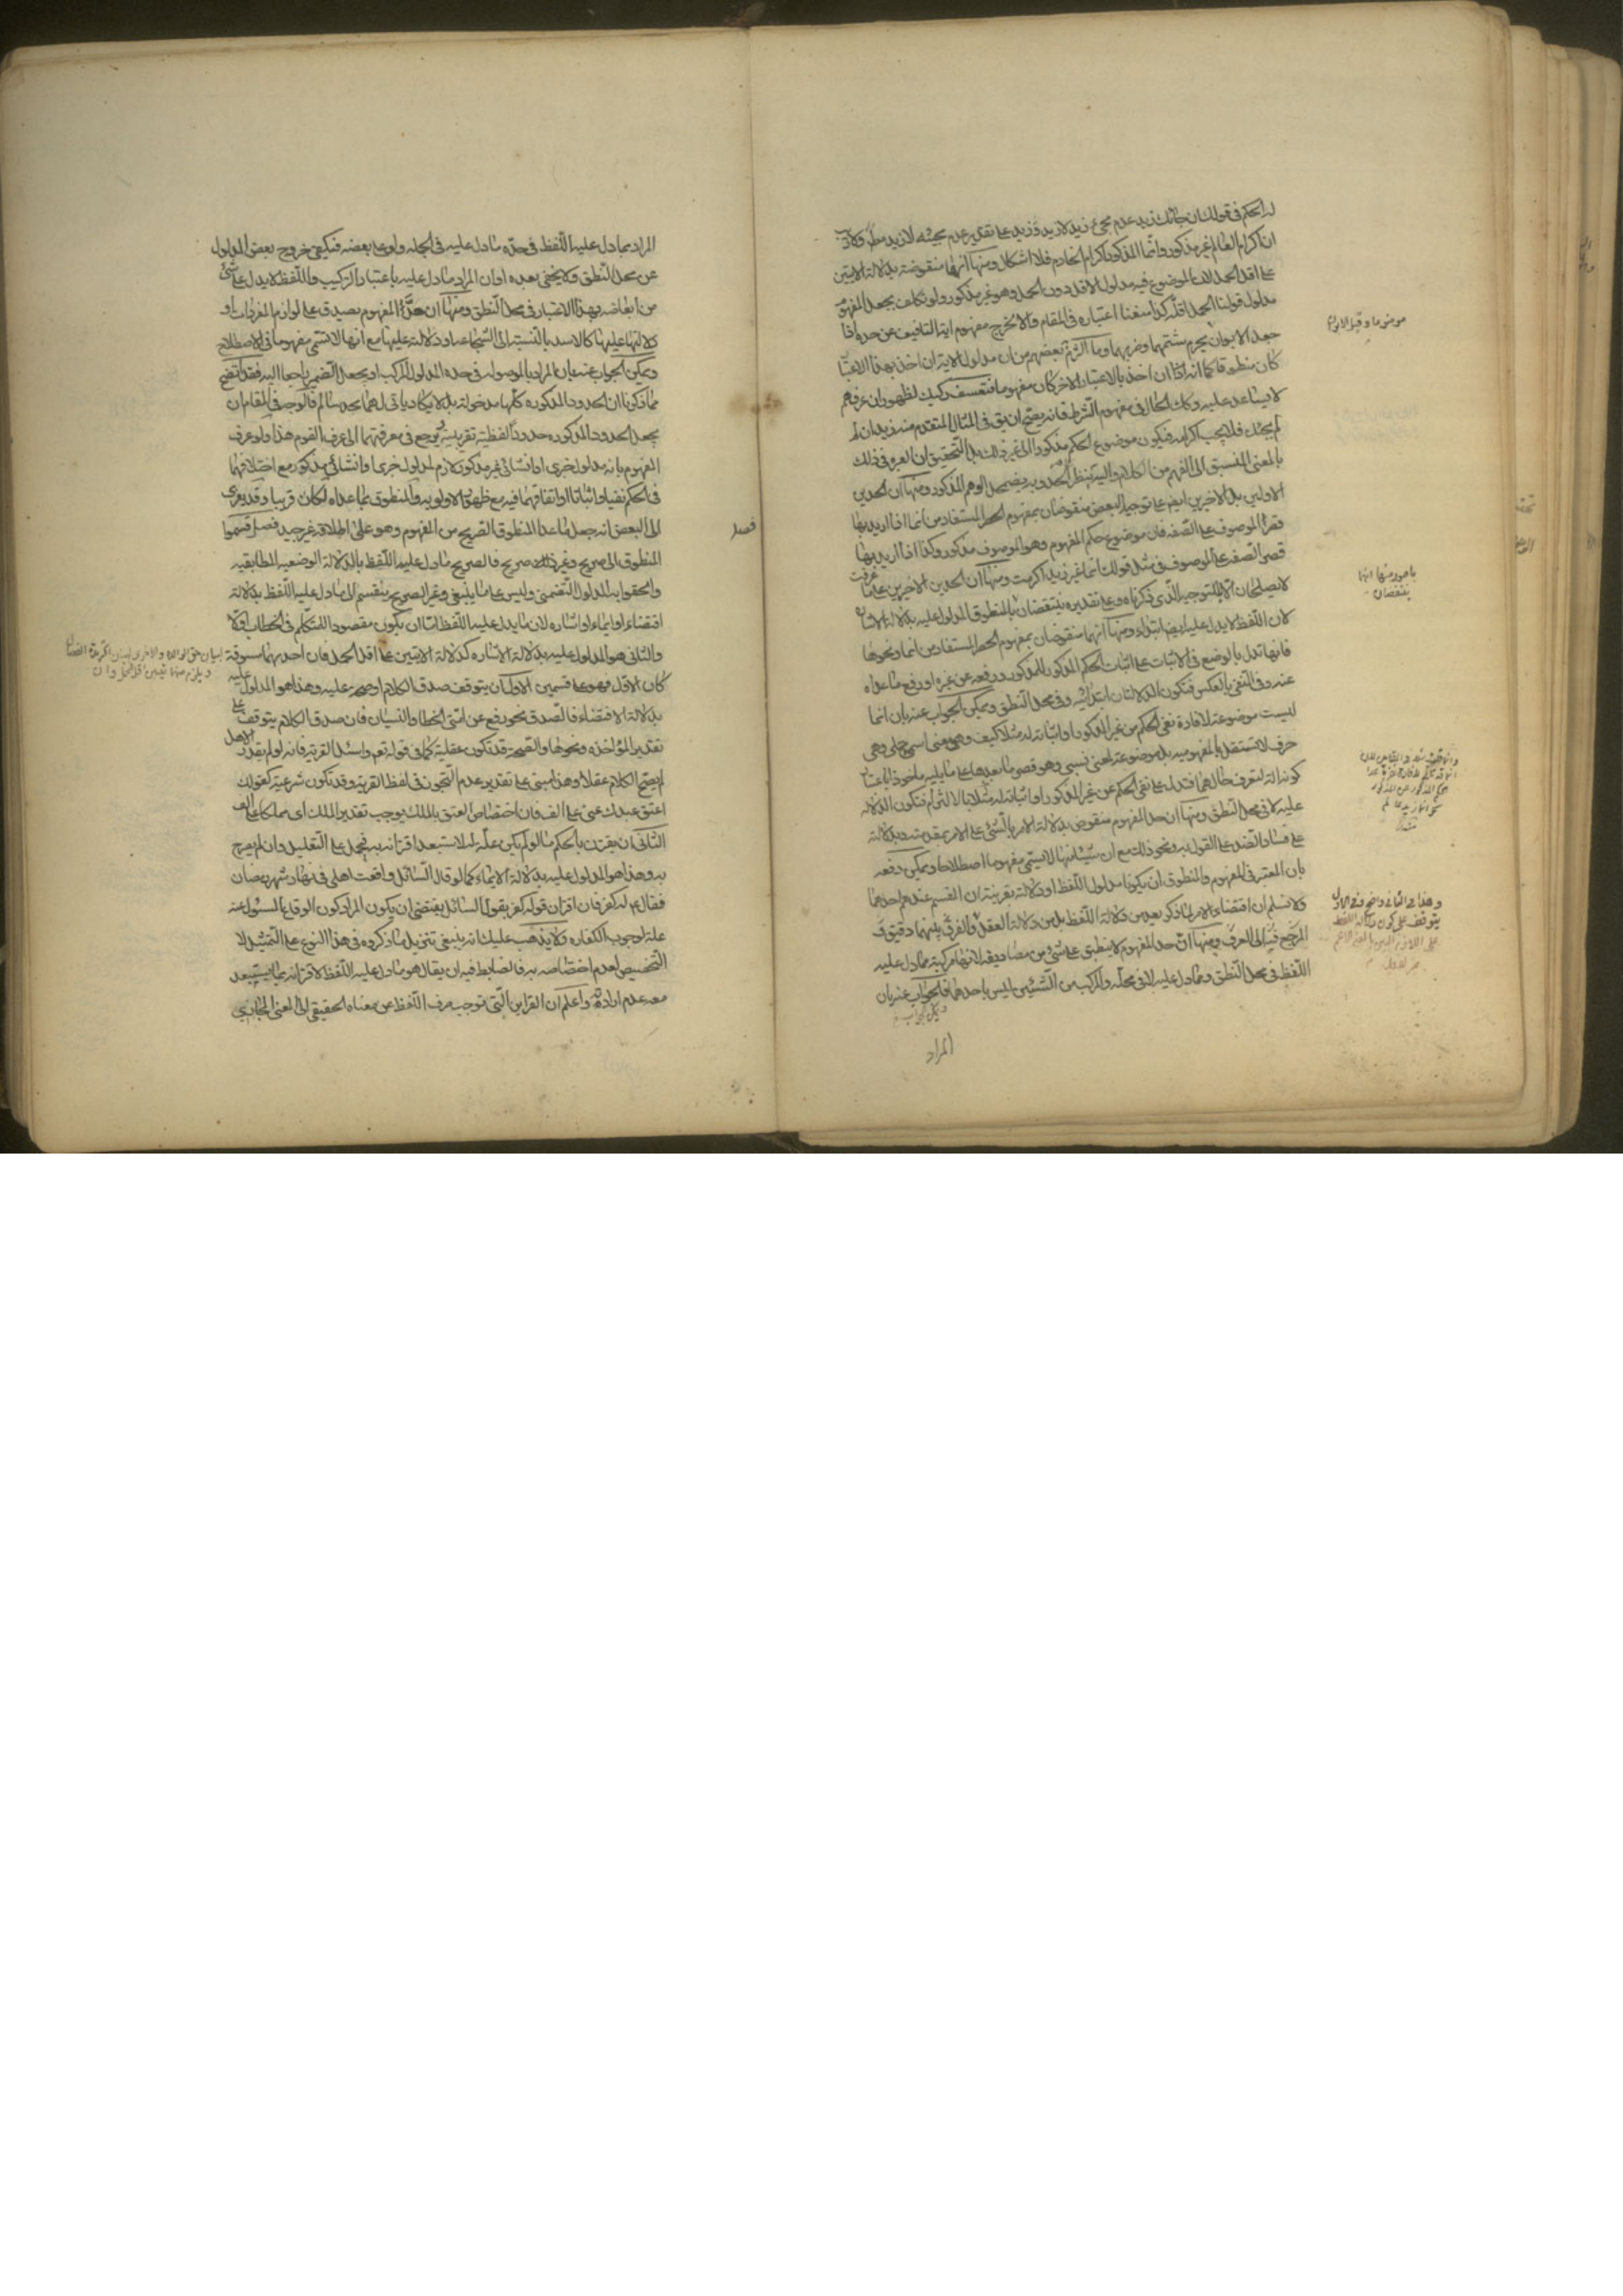 له الحكم في قولك ان جائك زيد عدم مجئ زيد لا زيد وزيد على تقدير عدم مجيئه لا زيد مطلقا ولا ريب
ان اكرام العالم غير مذكور وانما المذكور اكرام الخادم فلا اشكال ومنها انها منقوضة بدلالة الايتين
على اقل الحمل لان الموضوع فيه مدلول الاقل دون الحمل وهو غير مذكور ولو تكلف بجعل المفهوم
مدلول قولنا الحمل اقله كذا منعنا اعتباره في المقام والا لخرج مفهوم اية التافيف عن حده اذا
جعل الابوان يحرم شتمهما وضربهما وما التزم بعضهم من ان مدلول الاية ان اخذ بهذا الاعتبار
كان منطوقا كما انه اذا ان اخذ بالاعتبار الاخر كان مفهوما فتعسف ركيك لظهور ان عرفهم
لا يساعد عليه وكذلك الحال في مفهوم الشرط فانه يصح ان يق في المثال المتقدم منه زيد ان لم
يجئك فلا يجب اكرامه فيكون موضوع الحكم مذكورا الى غير ذلك بل التحقيق ان العبرة في ذلك
بالمعنى المنسبق الى الفهم من الكلام واليه ينظر الحد وبه يضمحل الوهم المذكور ومنها ان الحدين
الاولين بل الاخيرين ايضا على توجيه البعض منقوضان بمفهوم الحصر المستفاد من انما اذا اريد بها
قصر الموصوف على الصفة فان موضوع حكم المفهوم وهو الموصوف مذكور وكذا اذا اريد بها
قصر الصفة على الموصوف في مثل قولك انما غير زيد اكرمت ومنها ان الحدين الاخيرين على ما عرفت
لا يصلحان الا للتوجيه الذي ذكرناه وعلى تقديره ينتقضان بالمنطوق المدلول عليه بدلالة الاشارة
لان اللفظ لا يدل عليه ايضا ابتداء ومنها انهما منقوضان بمفهوم الحصر المستفاد من انما ونحوها
فانها تدل بالوضع في الاثبات على اثبات الحكم المذكور للمذكور ورفعه عن غيره او رفع ما عداه
عنه وفي النفي بالعكس فتكون الدلالتان ابتدائية وفي محل النطق ويمكن الجواب عنه بان انما
ليست موضوعة لافادة نفي الحكم من غير المذكور او اثباته له مثلا كيف وهو معنى اسمي جلي وهي
حرف لا تستقل بالمفهومية بل موضوعة لمعنى نسبي وهو قصر ما بعدها على ما يليه ماخوذا باعتبار
كونه الة لتعرف حالهما فتدل على نفي الحكم عن غير المذكور او اثباته له مثلا بالالتزام فتكون الدلالة
عليه لا في محل النطق ومنها ان حد المفهوم منقوض بدلالة الامر بالشئ على الامر بمقدمته وبدلالته
على فساد الضد على القول به ونحو ذلك مع ان شيئا منها لا يسمى مفهوما اصطلاحا ويمكن دفعه
بان المعتبر في المفهوم والمنطوق ان يكونا مدلول اللفظ او دلالته بقرينة ان القسم عندهم احدهما
ولا نسلم ان اقتضاء الامر لما ذكر يعد من دلالة اللفظ بل من دلالة العقل والفرق بينهما دقيق و
المرجع فيه الى العرف ومنها ان حد المفهوم لا ينطبق على شئ من مصاديقه لانها مركبة مما دل عليه
اللفظ في محل النطق ومما دل عليه لا في محله والمركب من الشيئين ليس باحدهما فالجواب عنه بان
ويمكن الجواب
المراد
بامور منها انهما
ينتقضان
وهذا في الثاني واضح وفي الاول
يتوقف على كون دلالة اللفظ
المراد بما دل عليه اللفظ في حده ما دل عليه في الجملة ولو على بعضه فيكفي خروج بعض المدلول
عن محل النطق ولا يخفى بعده او ان المراد ما دل عليه باعتبار التركيب واللفظ لا يدل على شئ
من ابعاضه بهذا الاعتبار في محل النطق ومنها ان حد المفهوم يصدق على لوازم المفردات و
دلالتها عليها كالاسد بالنسبة الى الشجاعة او دلالته عليها مع انها لا تسمى مفهوما في الاصطلاح
ويمكن الجواب عنه بان المراد بالموصولة في حده المدلول المركب او يجعل الضمير راجعا اليه فقد اتضح
مما ذكرنا ان الحدود المذكورة كلها مدخولة بل لا يكاد ياتي لهما بحد سالم فالوجه في المقام ان
يجعل الحدود المذكورة حدودا لفظية تقريبية يرجع في معرفتهما الى عرف القوم هذا ولو عرف
المفهوم بانه مدلول خبري او انشائي غير مذكور لازم لمدلول خبري او انشائي مذكور مع اختلافهما
في الحكم نفيا واثباتا او اتفاقهما فيه مع ظهور الاولوية والمنطوق بما عداه لكان قريبا وقد يعزى
الى البعض انه جعل ما عدا المنطوق الصريح من المفهوم وهو على اطلاقه غير جيد فصل قسموا
فصل
المنطوق الى صريح وغير صريح فالصريح ما دل عليه اللفظ بالدلالة الوضعية المطابقية
والحقوا به المدلول التضمني وليس على ما ينبغي وغير الصريح ينقسم الى ما دل عليه اللفظ بدلالة
اقتضاء او ايماء او اشارة لان ما يدل عليه اللفظ اما ان يكون مقصودا للمتكلم في الخطاب او لا
والثاني هو المدلول عليه بدلالة الاشارة كدلالة الايتين على اقل الحمل فان احدهما مسوقة
لبيان حق الوالدة والاخرى لبيان اكثر مدة الفصال
ويلزم منهما تعيين اقل الحمل وان
كان الاول فهو على قسمين الاول ان يتوقف صدق الكلام او صحته عليه وهذا هو المدلول عليه
بدلالة الاقتضاء فالصدق نحو رفع عن امتي الخطا والنسيان فان صدق الكلام يتوقف على
تقدير المؤاخذة ونحوها والصحة قد تكون عقلية كما في قوله تعالى واسئل القرية فانه لو لم يقدر الاهل
لم يصح الكلام عقلا وهذا مبني على تقدير عدم التجوز في لفظ القرية وقد تكون شرعية كقولك
اعتق عبدك عني على الف فان اختصاص العتق بالملك يوجب تقدير الملك اي مملكا على الف
الثاني ان يقترن بالحكم ما لو لم يكن علة له لاستبعد اقترانه به فيحمل على التعليل وان لم يصرح
به وهذا هو المدلول عليه بدلالة الايماء كما لو قال السائل واقعت اهلي في نهار شهر رمضان
فقال ع له كفر فان اقران قوله كفر بقول السائل يقتضي ان يكون المراد كون الوقاع المسئول عنه
علة لوجوب الكفارة ولا يذهب عليك انه ينبغي تنزيل ما ذكروه في هذا النوع على التمثيل لا
التخصيص لعدم اختصاصه به فالضابط فيه ان يقال هو ما دل عليه اللفظ لاقترانه بما يستبعد
معه عدم ارادته واعلم ان القراين التي توجب صرف اللفظ عن معناه الحقيقي الى المعنى المجازي